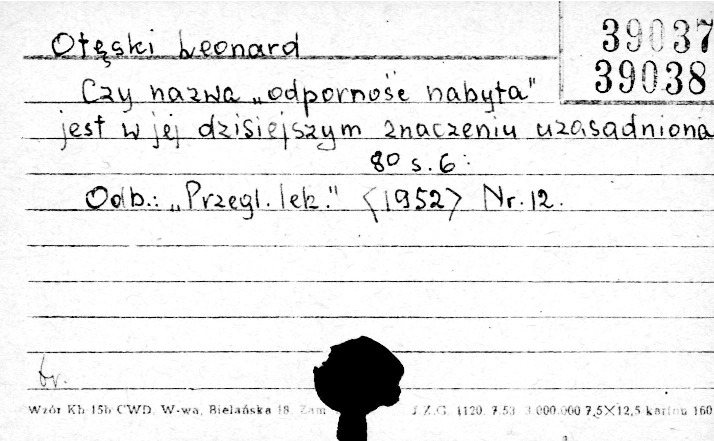 39037
39038
Otęski Leonard
Czy nazwa „odporność nabyta"
jest w jej dzisiejszym znaczeniu uzasadniona
8° s. 6.
Odb.: „Przegl. lek." <1952> Nr. 12.
tr.
Wzór Kb 15b CWD. W-wa, Bielańska 18. Zam J.Z.G. 1120. 7.53 3.000.000 7,5×12,5 karton 160